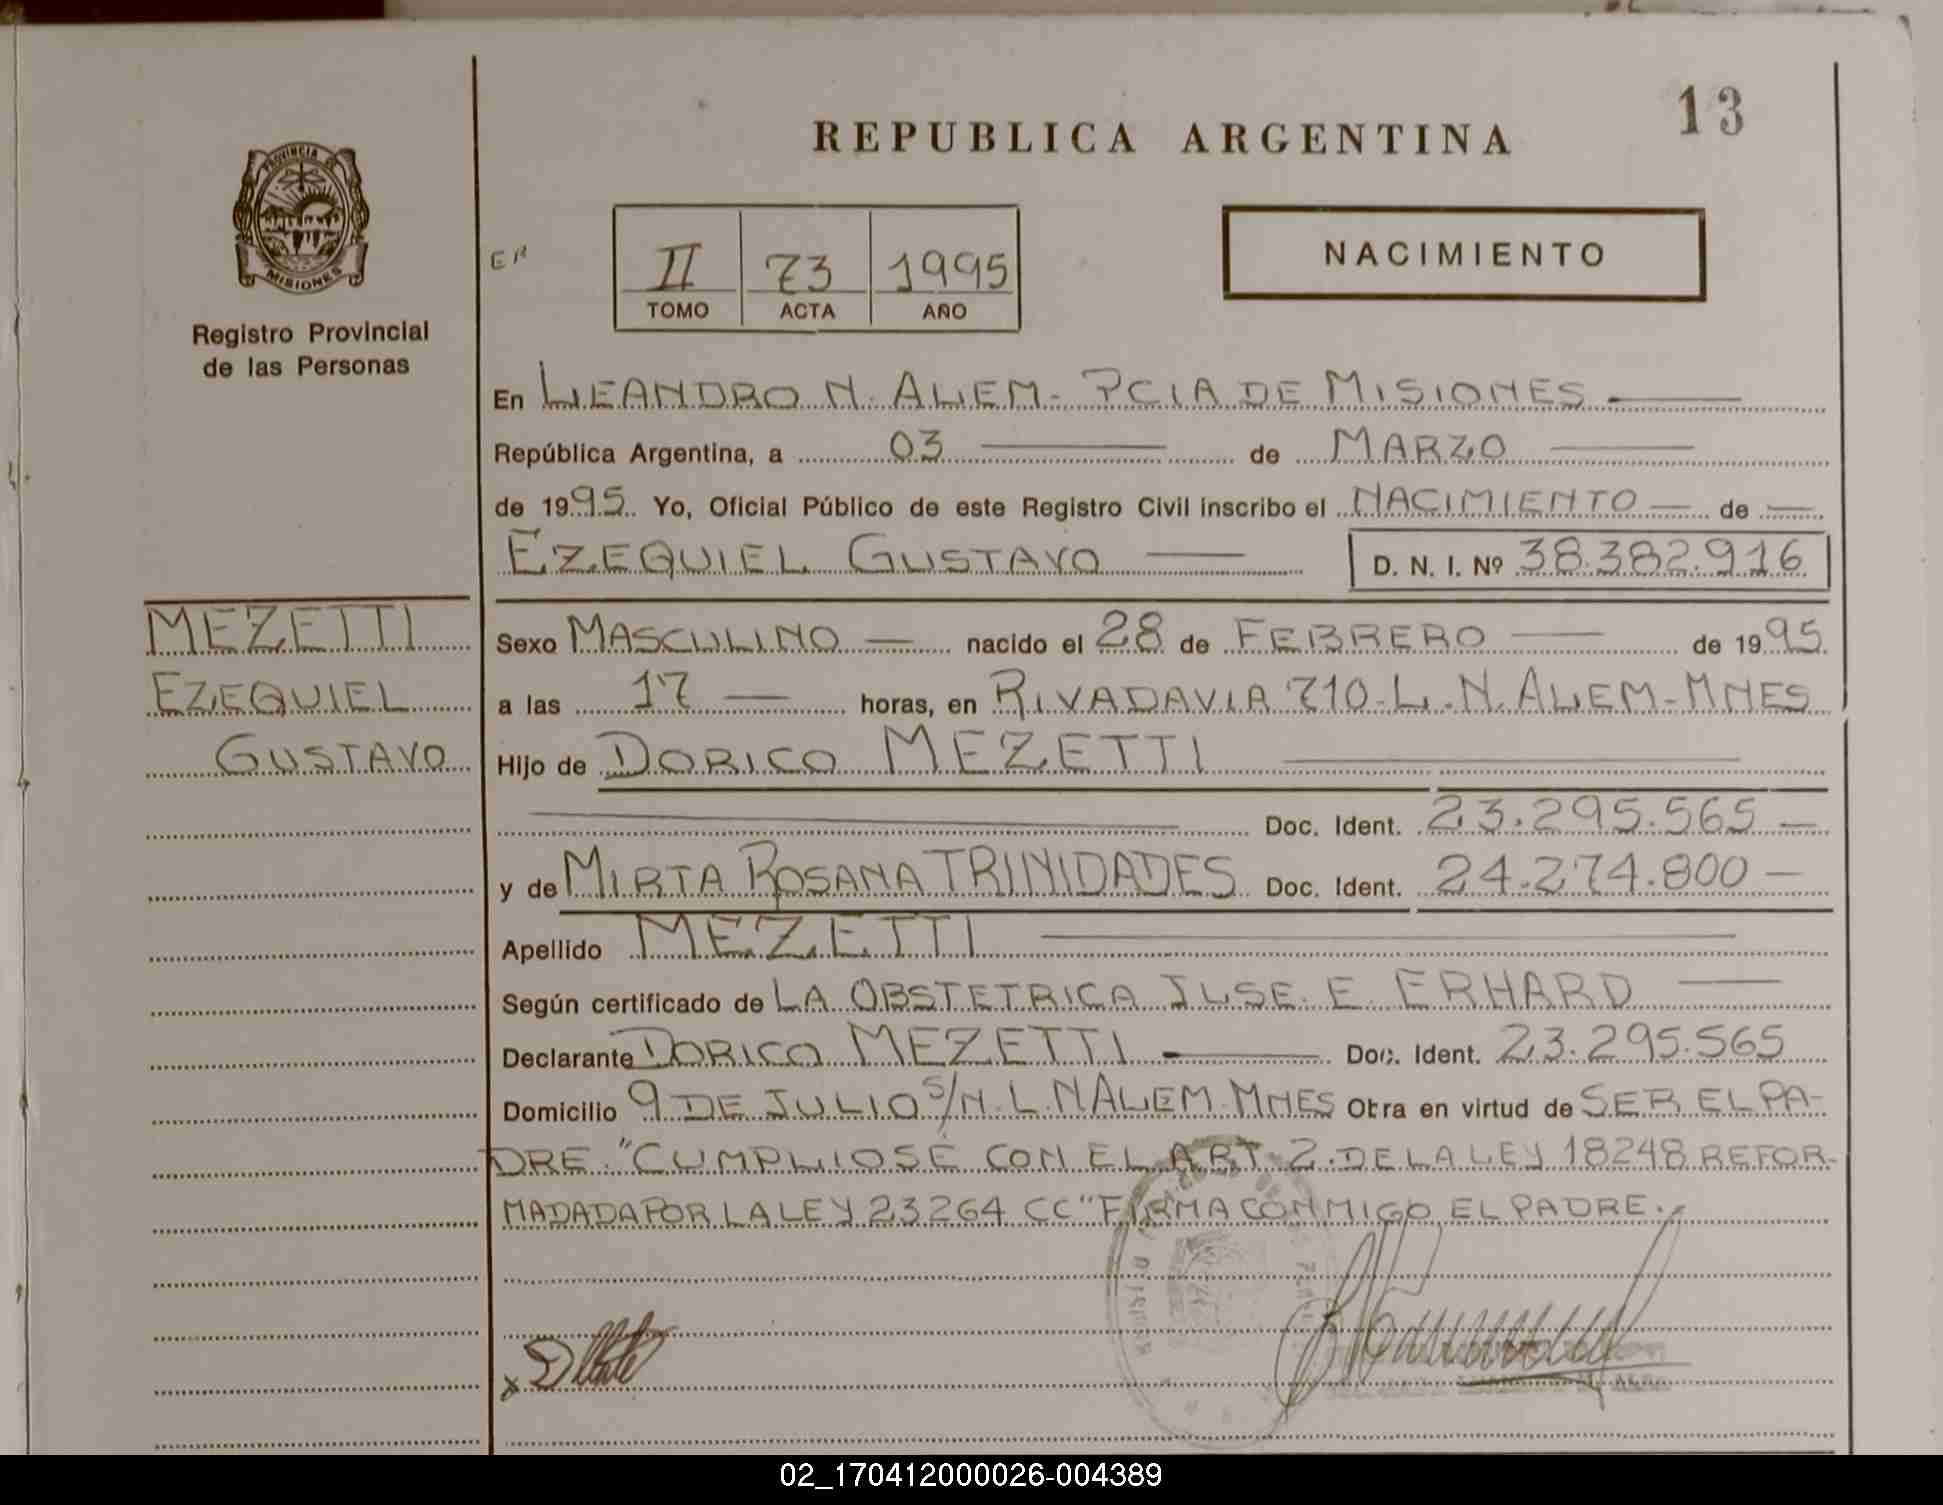 13
REPUBLICA ARGENTINA
PROVINCIA DE
MISIONES
Registro Provincial
de las Personas
ER
II 73 1995
TOMO ACTA AÑO
NACIMIENTO
En LEANDRO N. ALEM - PCIA DE MISIONES
República Argentina, a 03 de MARZO
de 1995 Yo, Oficial Público de este Registro Civil inscribo el NACIMIENTO de
EZEQUIEL GUSTAVO D. N. I. Nº 38.382.916
MEZETTI
EZEQUIEL
GUSTAVO
Sexo MASCULINO nacido el 28 de FEBRERO de 1995
a las 17 horas, en RIVADAVIA 710-L.N.ALEM-MNES
Hijo de DORICO MEZETTI
Doc. Ident. 23.295.565
y de MIRTA ROSANA TRINIDADES Doc. Ident. 24.274.800
Apellido MEZETTI
Según certificado de LA OBSTETRICA ILSE. E. ERHARD
Declarante DORICO MEZETTI Doc. Ident. 23.295.565
Domicilio 9 DE JULIO S/N. L.N ALEM-MNES Obra en virtud de SER EL PA-
DRE. "CUMPLIOSE CON EL ART. 2. DE LA LEY 18248 REFOR-
MADADA POR LA LEY 23264 CC" FIRMA CONMIGO EL PADRE.
02_170412000026-004389